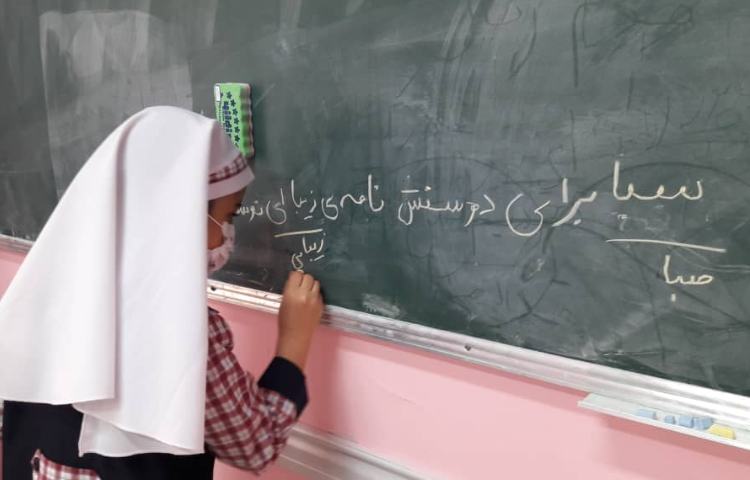 سبا برای دوستش نامه‌ی زیبا ای
صبا زیبایی